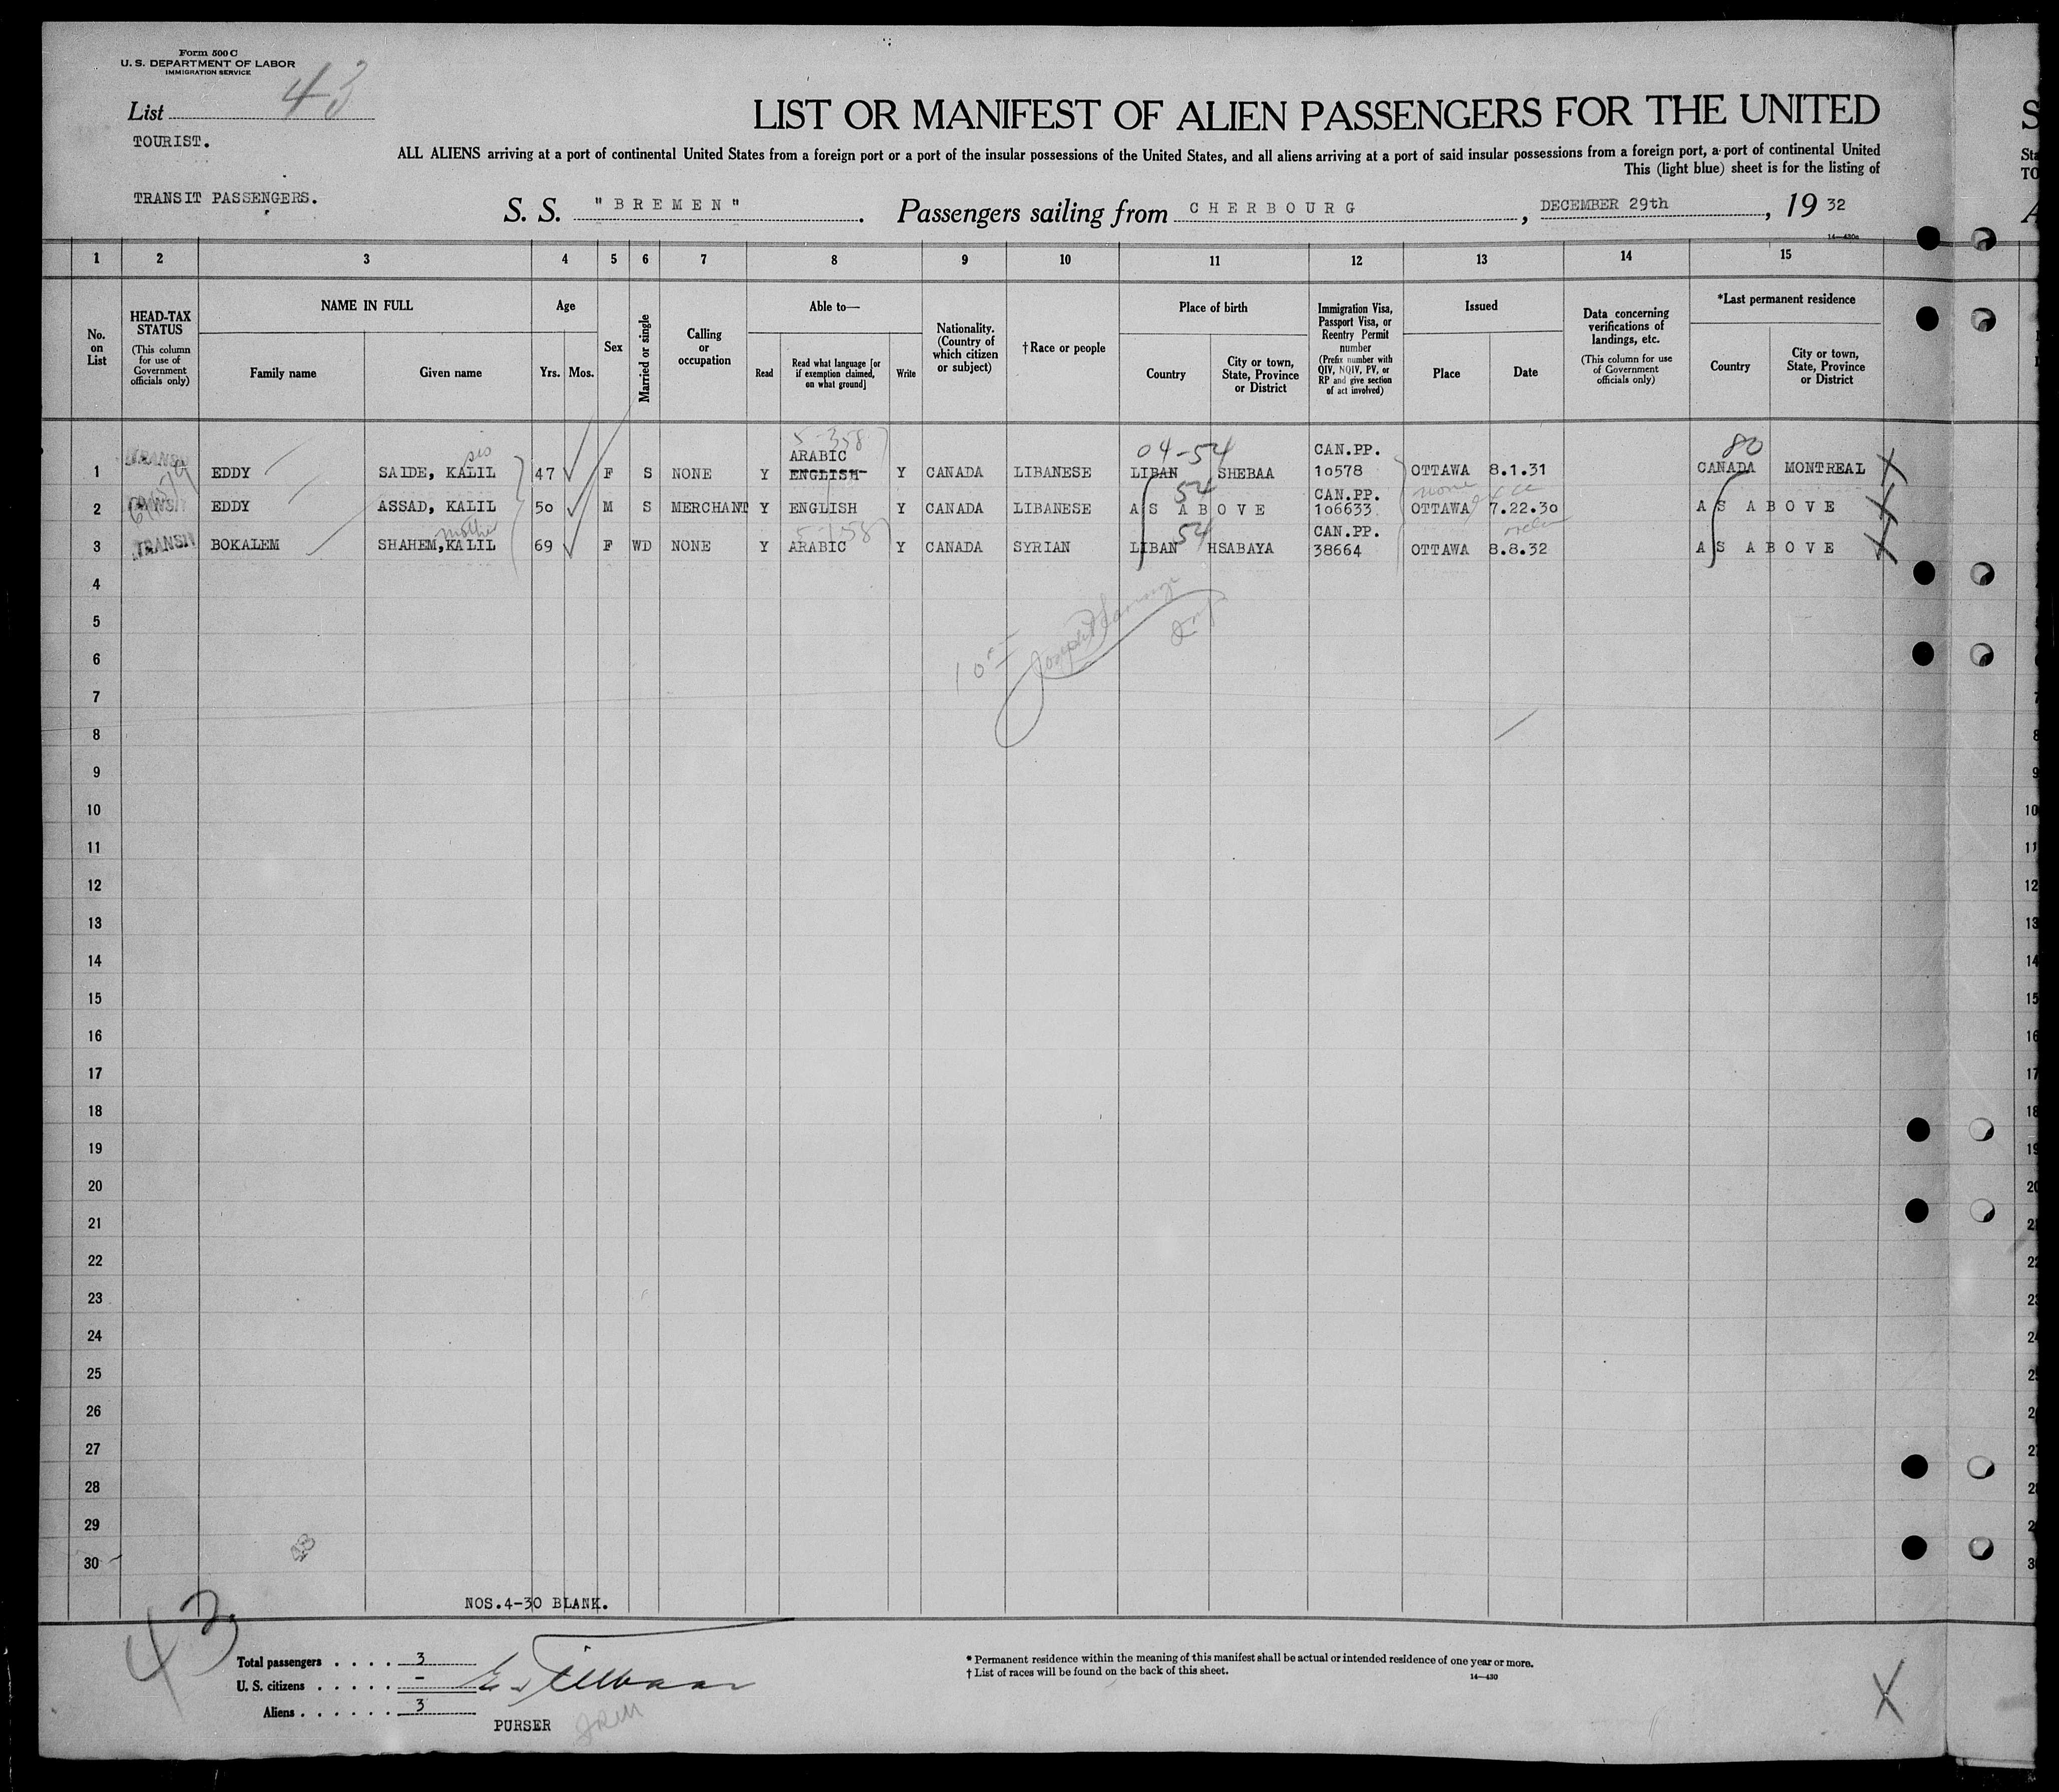 Form 500 C
U. S. DEPARTMENT OF LABOR
IMMIGRATION SERVICE
List 43
TOURIST.
TRANSIT PASSENGERS.
LIST OR MANIFEST OF ALIEN PASSENGERS FOR THE UNITED
ALL ALIENS arriving at a port of continental United States from a foreign port or a port of the insular possessions of the United States, and all aliens arriving at a port of said insular possessions from a foreign port, a port of continental United
This (light blue) sheet is for the listing of
S. S. "BREMEN". Passengers sailing from CHERBOURG, DECEMBER 29th, 19 32
14—430a
1 2 3 4 5 6 7 8 9 10 11 12 13 14 15
No. on List
HEAD-TAX STATUS
(This column for use of Government officials only)
NAME IN FULL
Family name
Given name
Age
Yrs. Mos.
Sex
Married or single
Calling or occupation
Able to—
Read
Read what language [or if exemption claimed, on what ground]
Write
Nationality. (Country of which citizen or subject)
†Race or people
Place of birth
Country
City or town, State, Province or District
Immigration Visa, Passport Visa, or Reentry Permit number
(Prefix number with QIV, NQIV, PV, or RP and give section of act involved)
Issued
Place
Date
Data concerning verifications of landings, etc.
(This column for use of Government officials only)
*Last permanent residence
Country
City or town, State, Province or District
5-358 04-54 80
sis ARABIC CAN.PP.
1 TRANSIT EDDY SAIDE, KALIL 47 F S NONE Y ENGLISH Y CANADA LIBANESE LIBAN SHEBAA 10578 OTTAWA 8.1.31 CANADA MONTREAL
54 CAN.PP. none
2 TRANSIT EDDY ASSAD, KALIL 50 M S MERCHANT Y ENGLISH Y CANADA LIBANESE AS ABOVE 106633 OTTAWA 7.22.30 AS ABOVE
mother 54 CAN.PP.
3 TRANSIT BOKALEM SHAHEM, KALIL 69 F WD NONE Y ARABIC Y CANADA SYRIAN LIBAN HSABAYA 38664 OTTAWA 8.8.32 AS ABOVE
4
5
6
7
8
9
10
11
12
13
14
15
16
17
18
19
20
21
22
23
24
25
26
27
28
29
30
NOS.4-30 BLANK.
43
Total passengers . . . . 3
U. S. citizens . . . . . –
Aliens . . . . . . 3
PURSER
* Permanent residence within the meaning of this manifest shall be actual or intended residence of one year or more.
† List of races will be found on the back of this sheet.
14—430